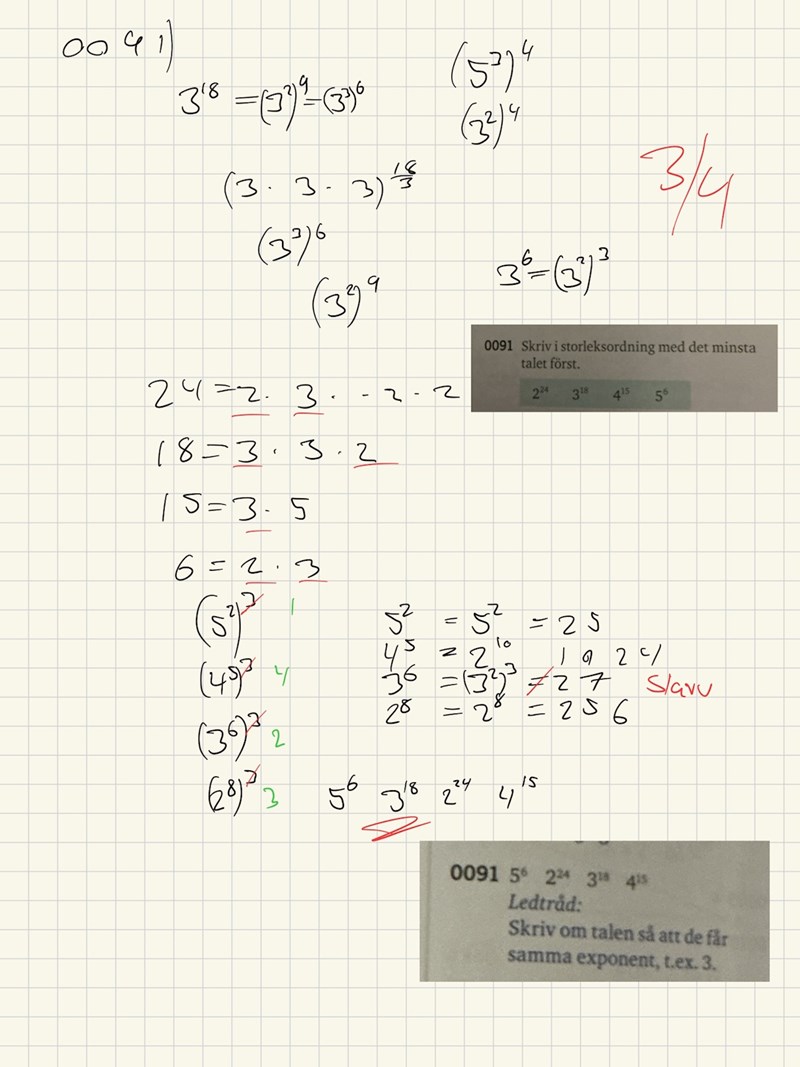 0091)
3^18 = (3^2)^9 = (3^3)^6
(5^3)^4
(3^2)^4
(3 · 3 · 3)^(18/3)
3/4
(3^3)^6
3^6 = (3^2)^3
(3^2)^9
0091 Skriv i storleksordning med det minsta
talet först.
2^24 3^18 4^15 5^6
24 = 2 · 3 · - 2 · 2
18 = 3 · 3 · 2
15 = 3 · 5
6 = 2 · 3
(5^2)^3 1
5^2 = 5^2 = 25
4^5 = 2^10 1024
(4^5)^3 4
3^6 = (3^2)^3 = 27 Slarv
2^8 = 2^8 = 256
(3^6)^3 2
(2^8)^3 3
5^6 3^18 2^24 4^15
0091 5^6 2^24 3^18 4^15
Ledtråd:
Skriv om talen så att de får
samma exponent, t.ex. 3.